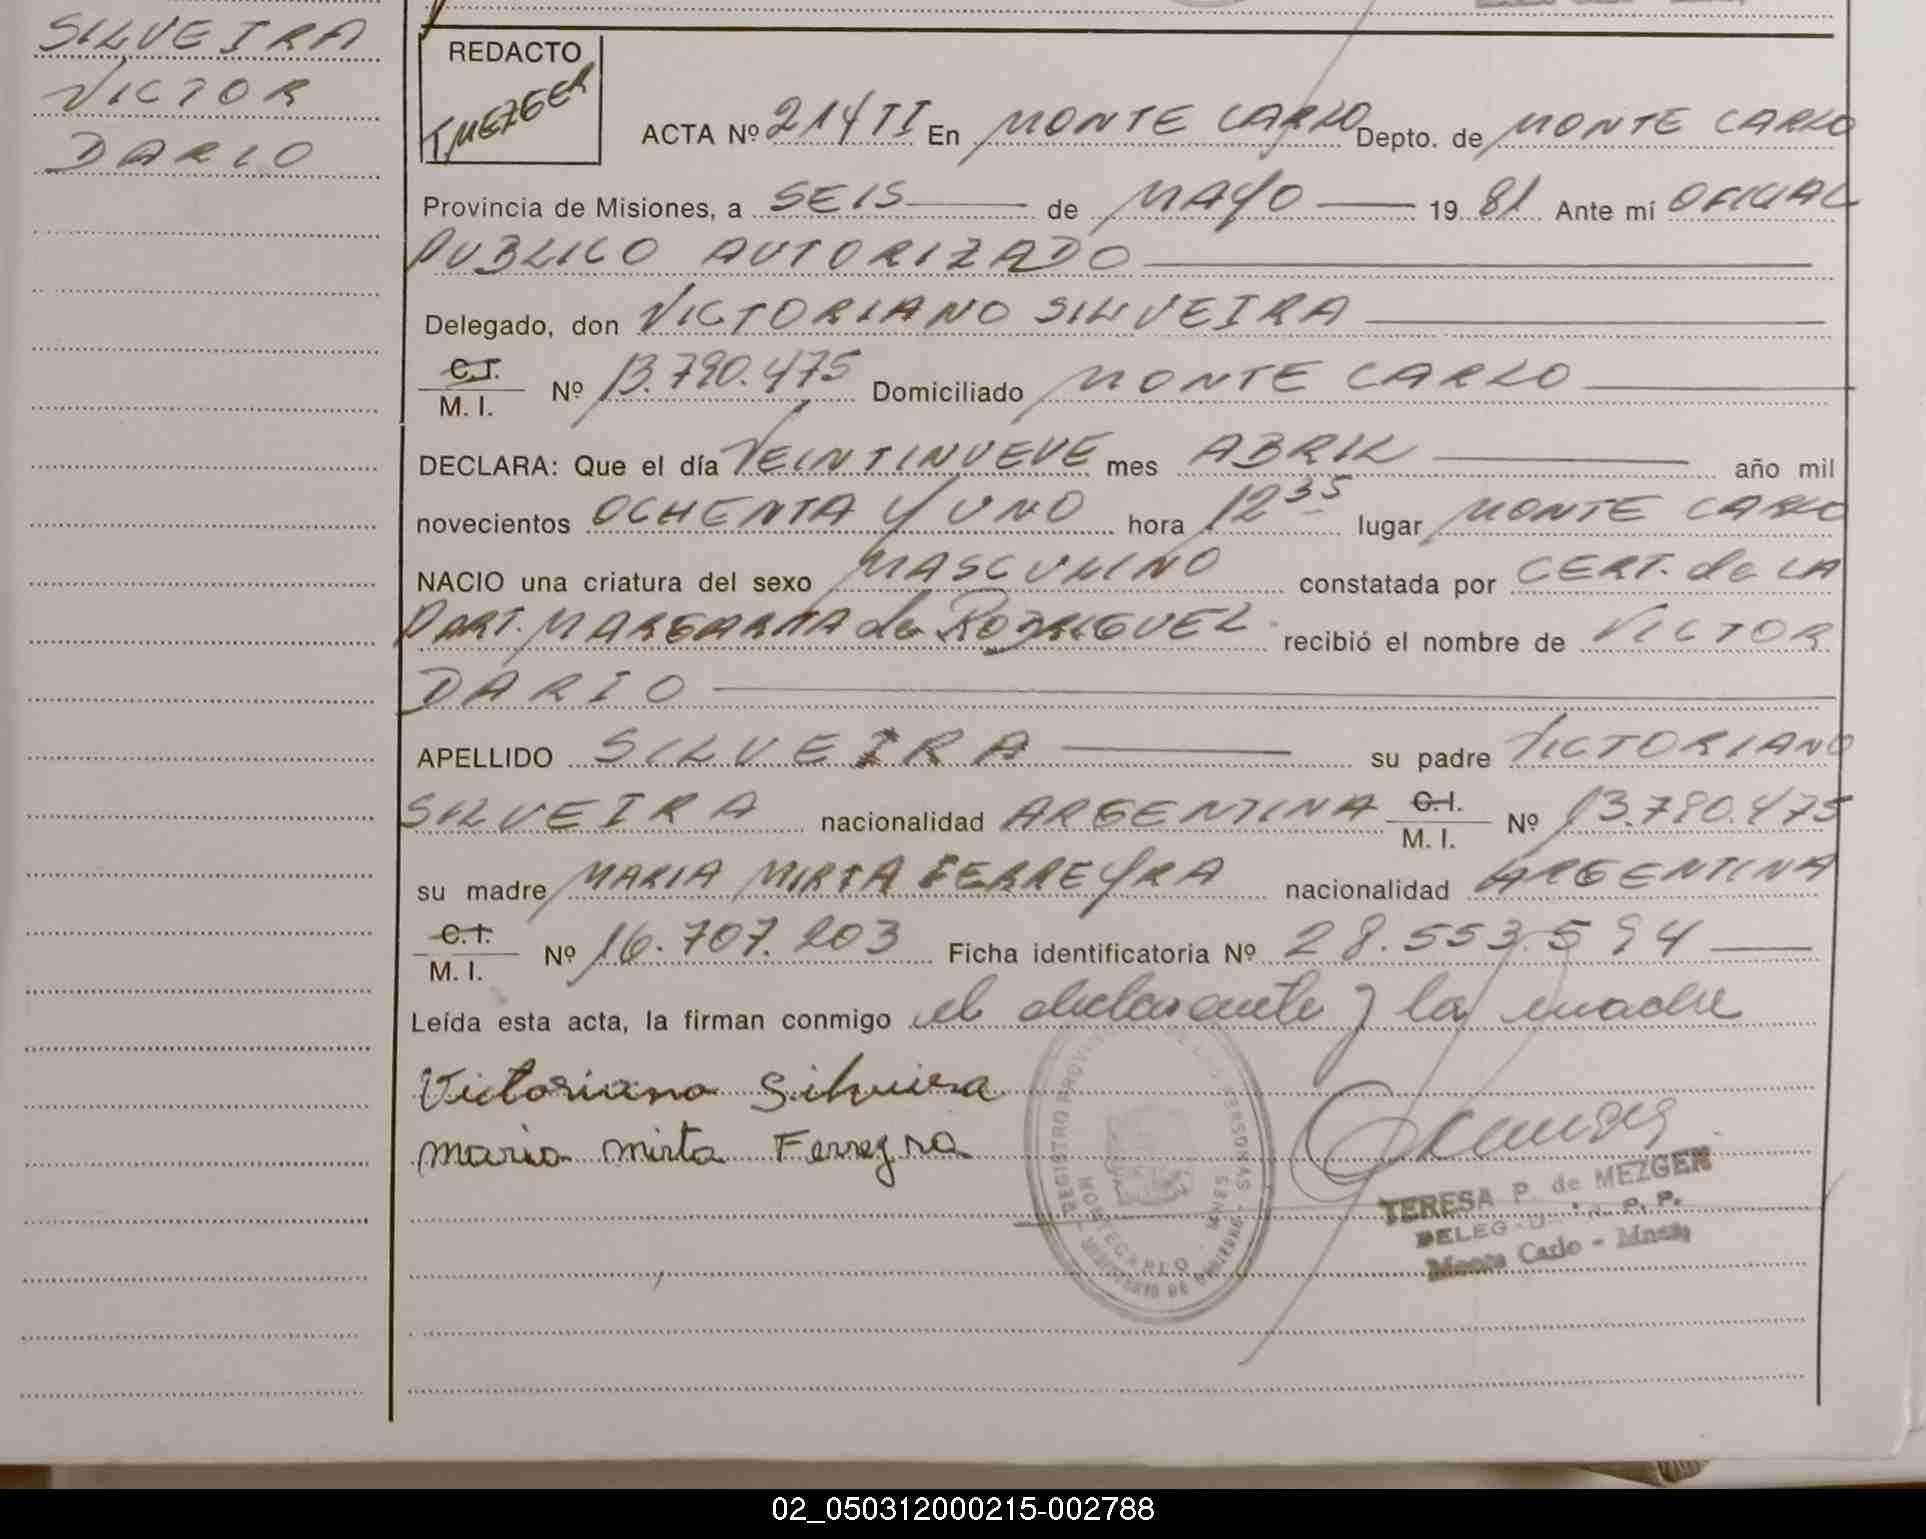 SILVEIRA
VICTOR
DARIO
REDACTO
T. MEZGER
ACTA Nº 214 TI En MONTE CARLO Depto. de MONTE CARLO
Provincia de Misiones, a SEIS de MAYO 19 81 Ante mí OFICIAL
PUBLICO AUTORIZADO
Delegado, don VICTORIANO SILVEIRA
C.I.
M. I. Nº 13.790.475 Domiciliado MONTE CARLO
DECLARA: Que el día VEINTINUEVE mes ABRIL año mil
novecientos OCHENTA Y UNO hora 12 35 lugar MONTE CARLO
NACIO una criatura del sexo MASCULINO constatada por CERT. de LA
PART. MARGARITA de RODRIGUEZ recibió el nombre de VICTOR
DARIO
APELLIDO SILVEIRA su padre VICTORIANO
SILVEIRA nacionalidad ARGENTINA C.I. M. I. Nº 13.790.475
su madre MARIA MIRTA FERREYRA nacionalidad ARGENTINA
C.I.
M. I. Nº 16.707.203 Ficha identificatoria Nº 28.553.594
Leída esta acta, la firman conmigo el declarante y la madre
Victoriano Silveira
maria mirta Ferreyra
TERESA P. de MEZGER
Monte Carlo - Mnes
MONTECARLO - MNES
02_050312000215-002788